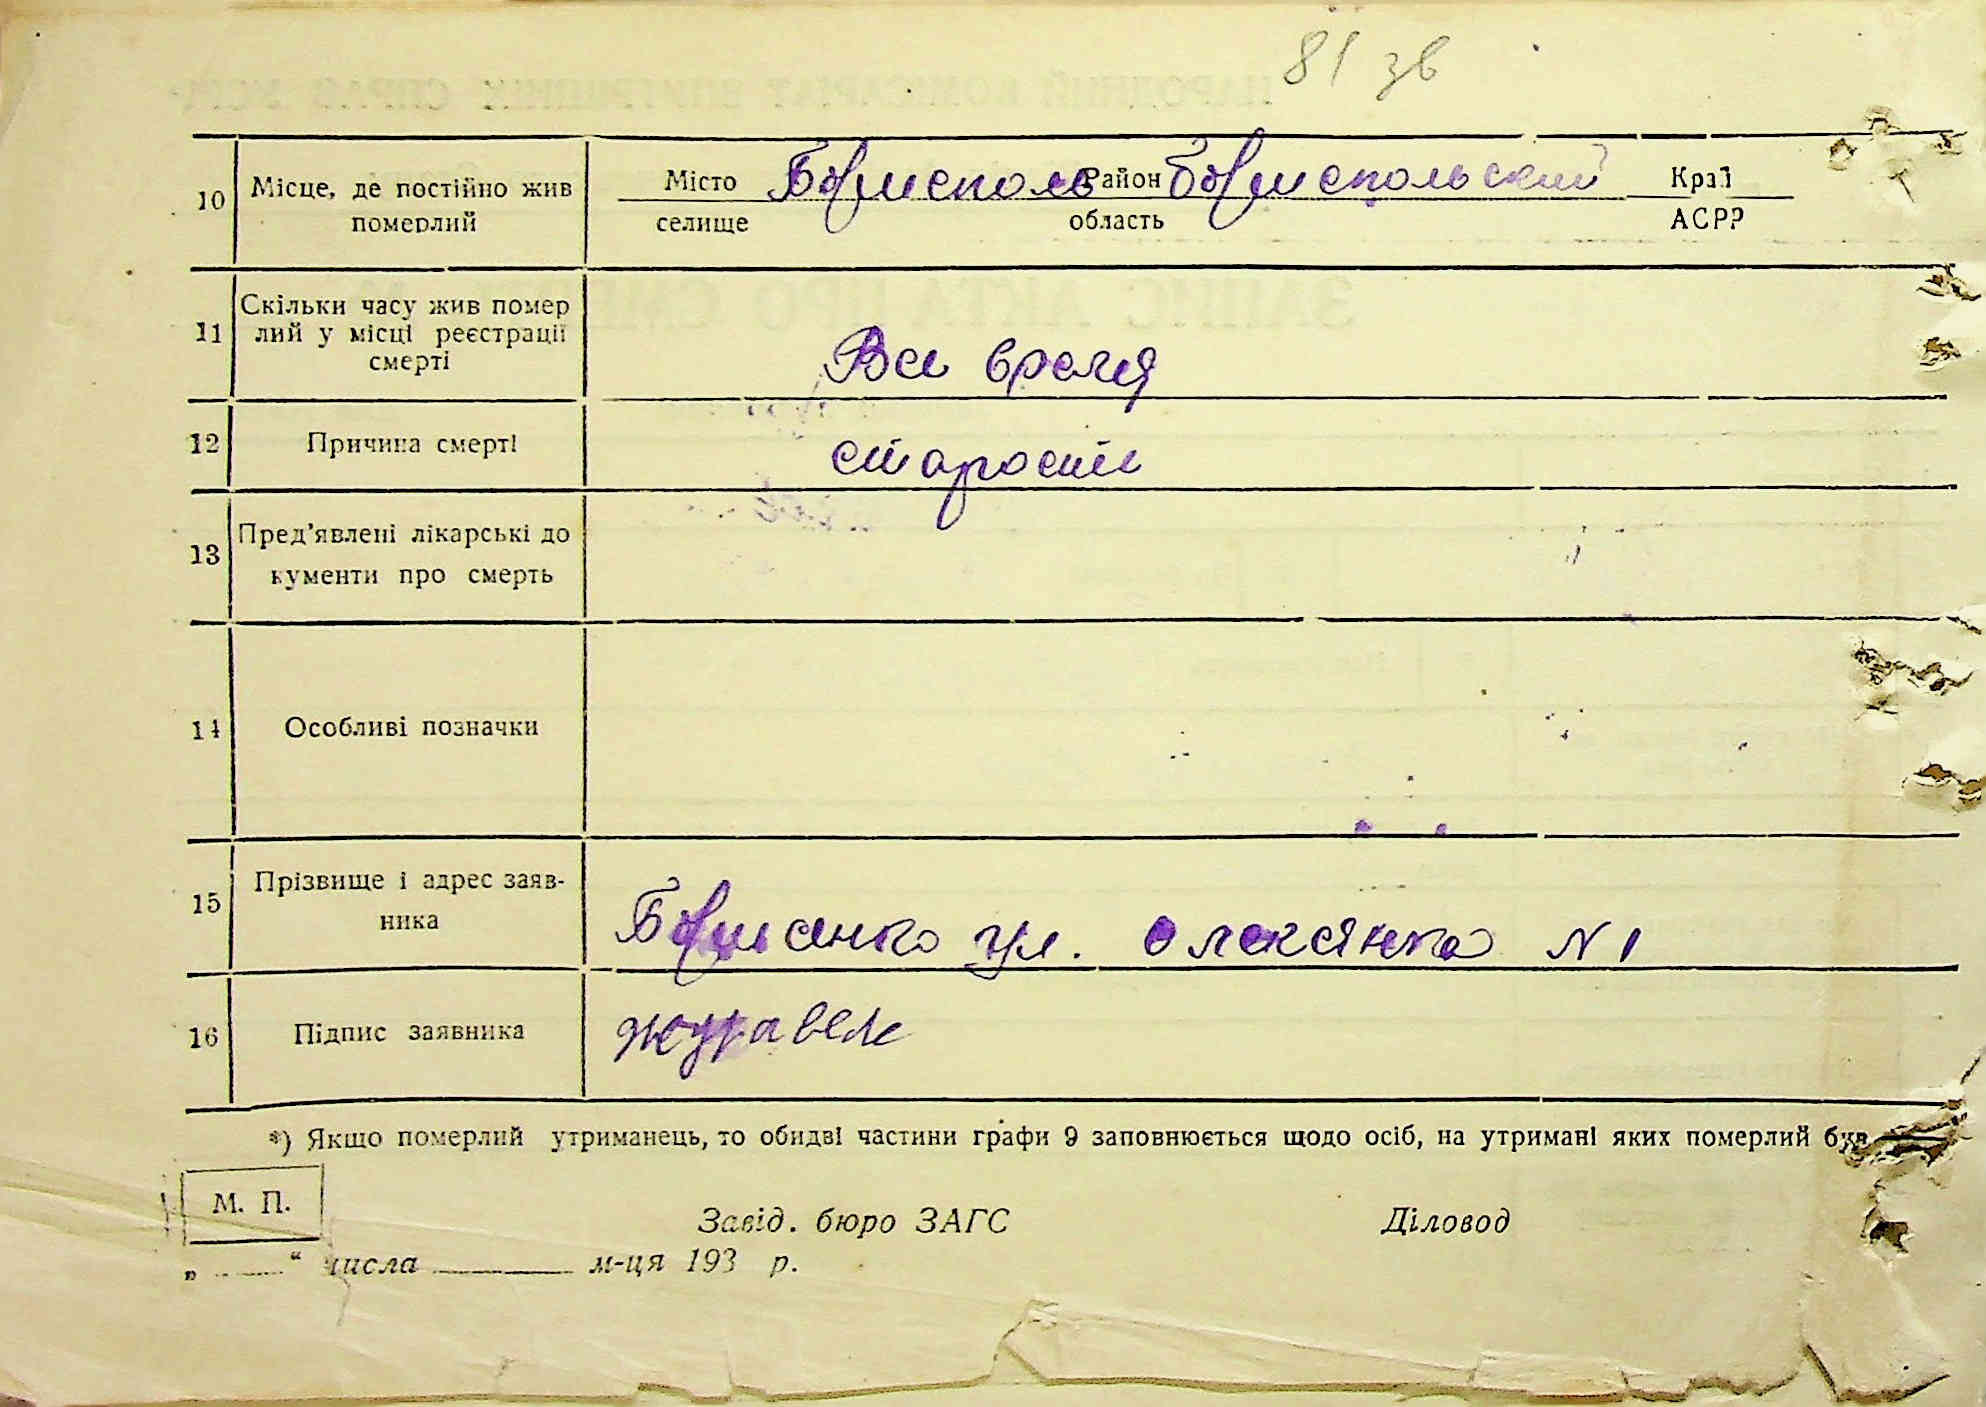 81 зв
10 Місце, де постійно жив померлий
Місто Борисполь Район Бориспольский Край
селище область АСРР
11 Скільки часу жив помер
лий у місці реєстрації
смерті
Все время
12 Причина смерті старости
13 Пред'явлені лікарські до
кументи про смерть
14 Особливі позначки
15 Прізвище і адрес заяв-
ника
ул. N 1
16 Підпис заявника Журавель
*) Якщо померлий утриманець, то обидві частини графи 9 заповнюється щодо осіб, на утримані яких померлий був
М. П.
Завід. бюро ЗАГС Діловод
„ “ числа м-ця 193 р.